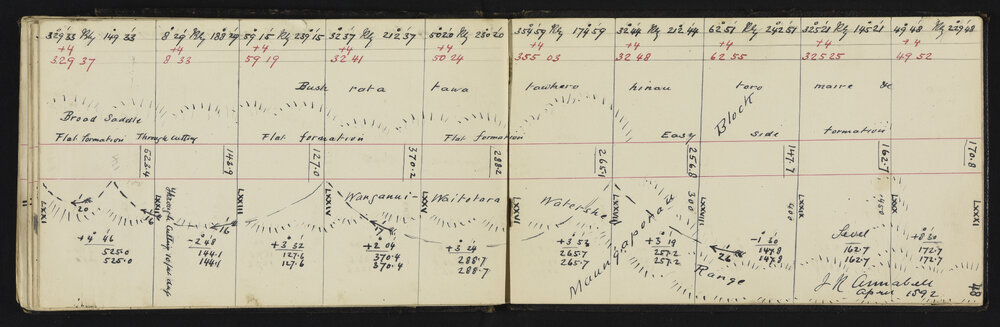 329°33 Rly 149 33 8 29 Rly 188 29 59 15 Rly 239 15 32 37 Rly 212 37 50 20 Rly 230 20 354 59 Rly 174 59 32 44 Rly 212 44 62 51 Rly 242 51 325 21 Rly 145 21 49 48 Rly 229 48
+4 +4 +4 +4 +4 +4 +4 +4 +4 +4
329 37 8 33 59 19 32 41 50 24 355 03 32 48 62 55 325 25 49 52
Bush rata tawa tawhero hinau toro maire &c
Broad Saddle Block
Flat formation Through Cutting Flat formation Flat formation Easy side formation
523.4 143.9 127.0 370.2 288.2 265.1 256.8 147.7 162.7 170.8
LXXI LXXII LXXIII LXXIV LXXV LXXVI LXXVII LXXVIII LXXIX LXXX LXXXI
300 400 450
20 16 16 26
Through Cutting
Wanganui - Waitotara Watershed
Maungapohau Range
+4° 46 -2 48 +3 32 +2 04 +3 24 +3 53 +3 19 -1 30 Level +8 30
525.0 144.1 127.6 370.4 288.7 265.7 257.2 147.8 162.7 172.7
525.0 144.1 127.6 370.4 288.7 265.7 257.2 147.8 162.7 172.7
J R Annabell
April 1892
48